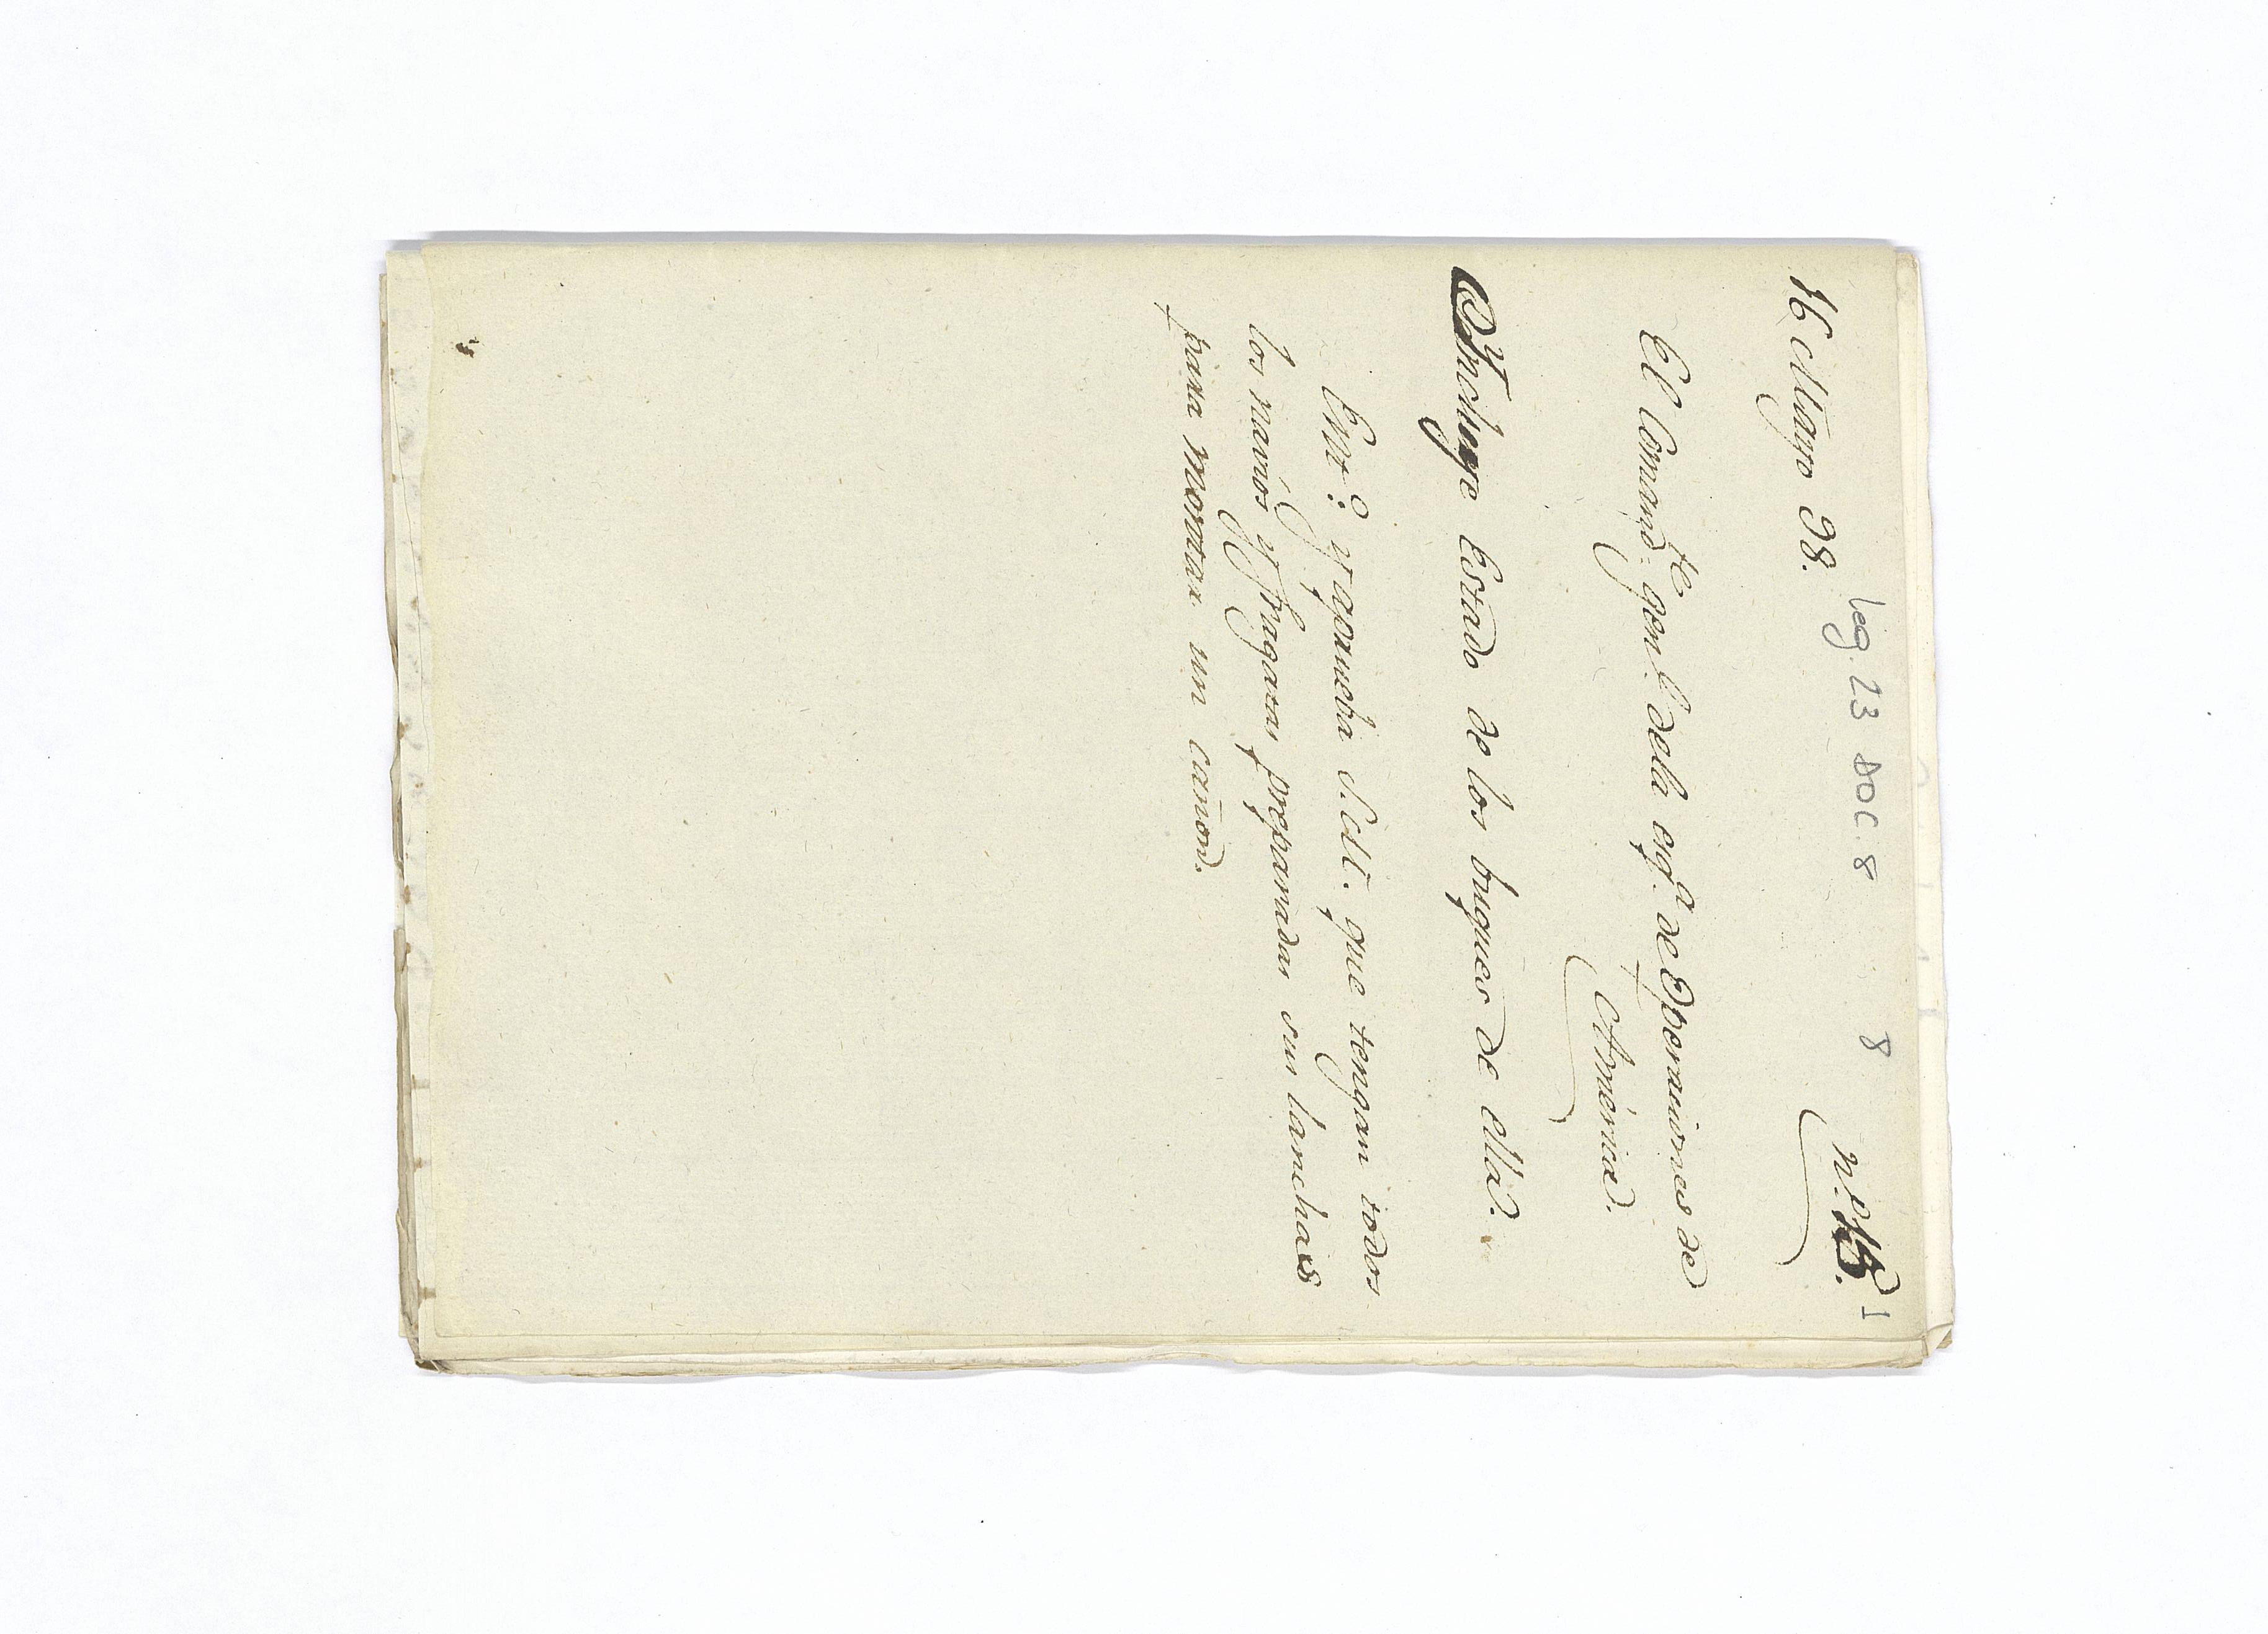 leg. 23 doc. 8
8
16 Mayo 98.
N.º 15. 1
El Comand.te gen.l de la esq.a de Operaciones de
America.
Ynclúye Estado de los buques de ella.
Ent.º y aprueba S.M. que tengan todos
los navíos y fragatas preparadas sus lanchas
para montar un cañon.